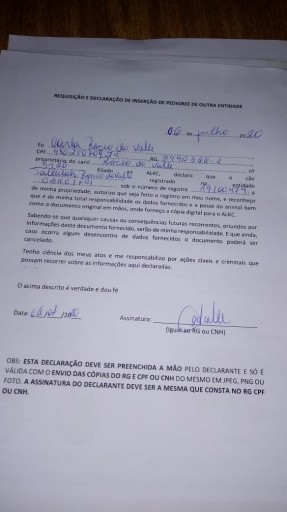 REQUISIÇÃO E DECLARAÇÃO DE INSERÇÃO DE PEDIGREE DE OUTRA ENTIDADE
06 de julho 20
Eu Carla Rocio do Valle
CPF RG
proprietário do canil Rocio do Valle nº
filiado ALKC, declaro que o cão
registrado na entidade
sob o número de registro é
de minha propriedade, autorizo que seja feito o registro em meu nome, e reconheço
que é de minha total responsabilidade os dados fornecidos e a posse do animal bem
como o documento original em mãos, onde forneço a cópia digital para o ALKC.
Sabendo-se que quaisquer causas ou consequências futuras recorrentes, oriundos por
informações deste documento fornecido, serão de minha responsabilidade. E que ainda,
caso ocorra algum desencontro de dados fornecidos o documento poderá ser
cancelado.
Tenho ciência dos meus atos e me responsabilizo por ações cíveis e criminais que
possam recorrer sobre as informações aqui declaradas.
O acima descrito é verdade e dou fé
Data: Assinatura:
(Igual ao RG ou CNH)
OBS: ESTA DECLARAÇÃO DEVE SER PREENCHIDA A MÃO PELO DECLARANTE E SÓ É
VÁLIDA COM O ENVIO DAS CÓPIAS DO RG E CPF OU CNH DO MESMO EM JPEG, PNG OU
FOTO. A ASSINATURA DO DECLARANTE DEVE SER A MESMA QUE CONSTA NO RG CPF
OU CNH.